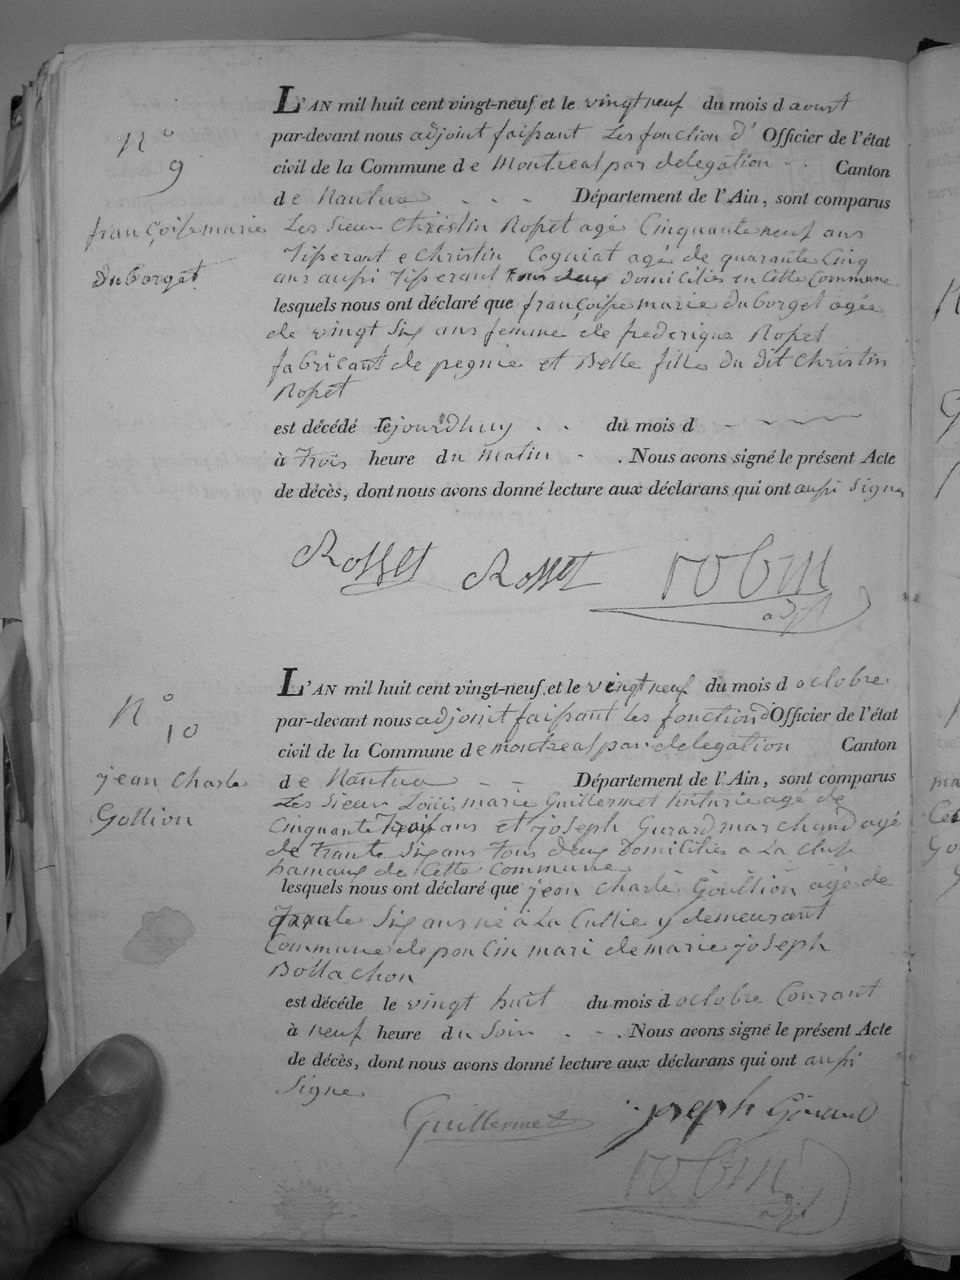 L'AN mil huit cent vingt-neuf et le vingt neuf du mois d aoust
N° 9
par-devant nous adjoint faissant Les fonction d' Officier de l'état
civil de la Commune de Montreal par delegation Canton
de Nantua Département de l'Ain, sont comparus
françoise marie Duborget
Les Sieur Christin Rosset agé Cinquante neuf ans
Tisserant e Christin Cognat agé de quarante Cinq
ans aussi Tisserant Tous deux Domiciliés en Cette Commune
lesquels nous ont déclaré que françoise marie duborget agée
de vingt six ans femme de frederique Rosset
fabricant de pegnie et Belle fille du dit Christin
Rosset
est décédé Cejourdhuy du mois d
à Trois heure du Matin . Nous avons signé le présent Acte
de décès, dont nous avons donné lecture aux déclarans qui ont aussi signe
Rosset Rosset robin
adjt
L'AN mil huit cent vingt-neuf, et le vingt neuf du mois d octobre
N° 10
par-devant nous adjoint faissant les fonction d Officier de l'état
civil de la Commune de montreal par delegation Canton
jean Charle Gollion
de Nantua Département de l'Ain, sont comparus
Les Sieur Louis marie Guillermet agé de
Cinquante Trois ans et joseph Gurard marchand agé
de Trante Six ans Tous deux Domiciliés a La Cluse
hamaux de Cette Commune
lesquels nous ont déclaré que jean Charle Goullion agé de
Trante Six ans né à La Cullie y demeurant
Commune de poncin mari de marie joseph
Bollachon
est décédé le vingt huit du mois d octobre Courant
à neuf heure du Soir . Nous avons signé le présent Acte
de décès, dont nous avons donné lecture aux déclarans qui ont aussi
signe
Guillermet joseph Girard
robin
adjt